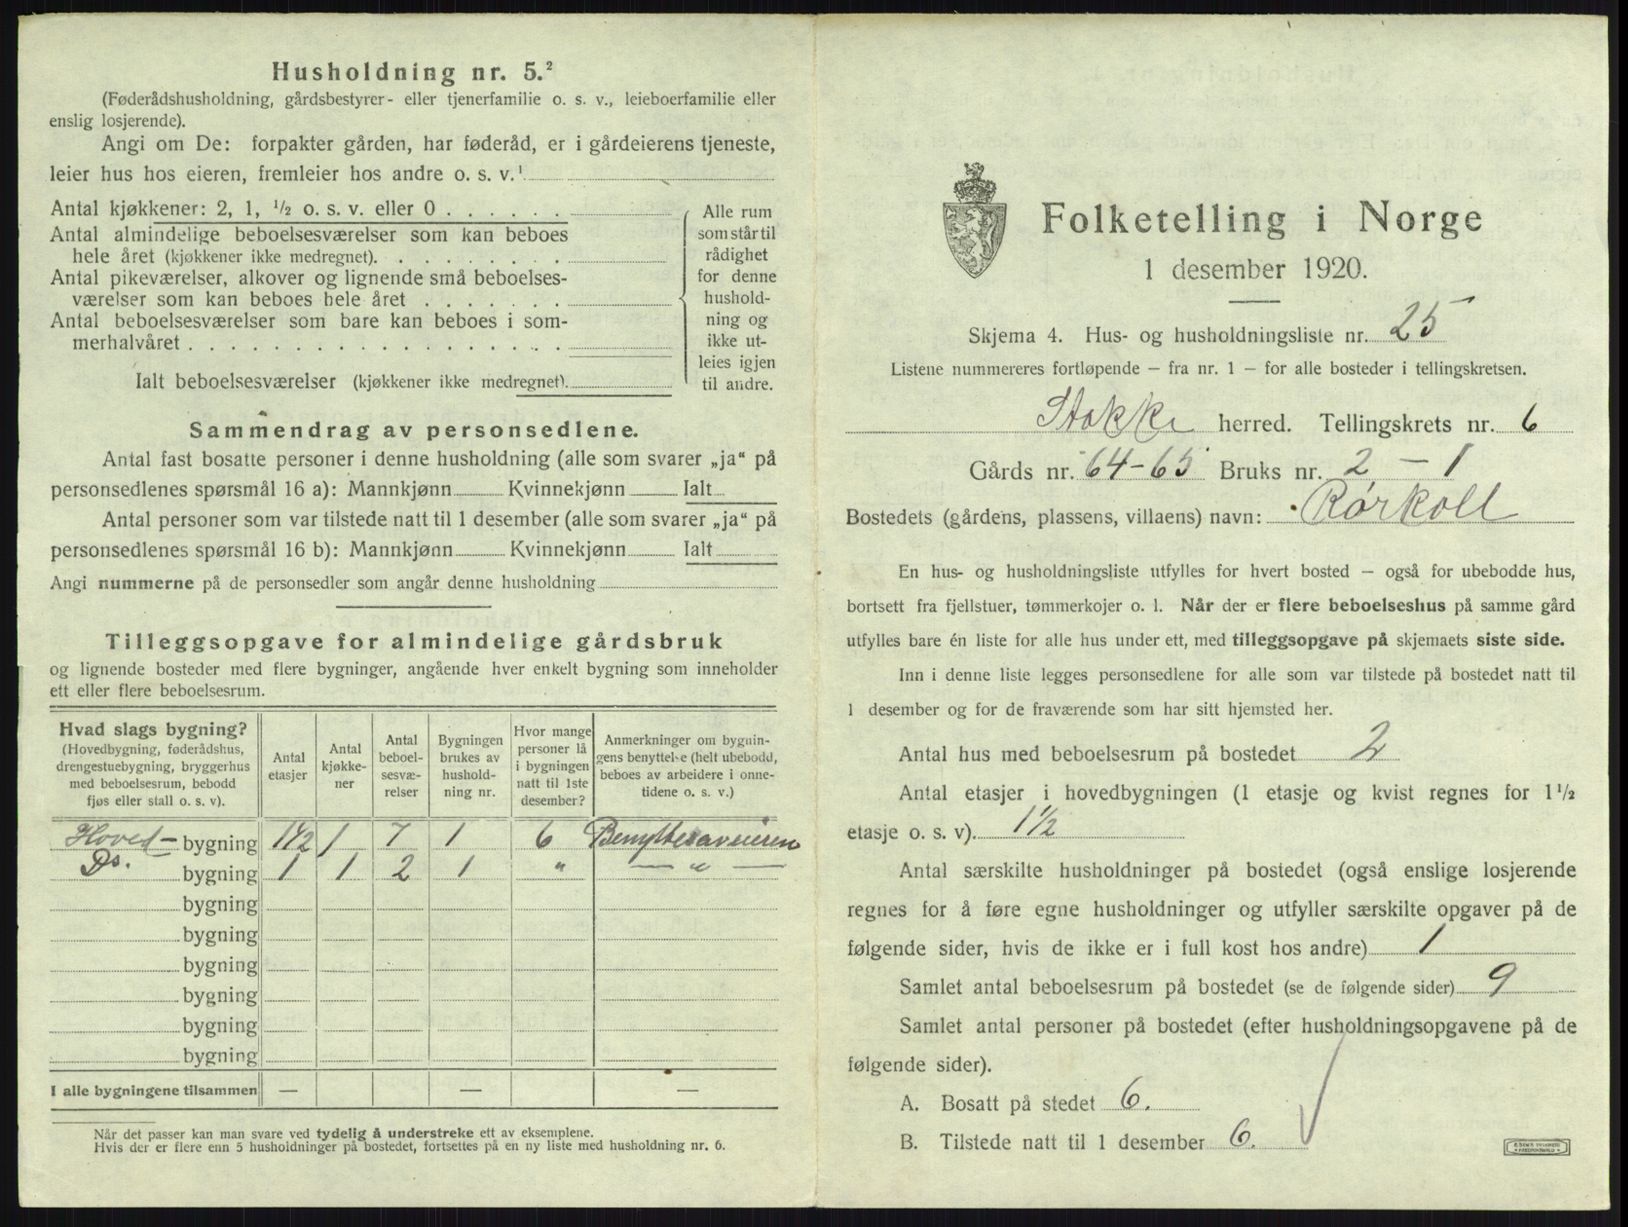 Husholdning nr. 5.²
(Føderådshusholdning, gårdsbestyrer- eller tjenerfamilie o. s. v., leieboerfamilie eller
enslig losjerende).
Angi om De: forpakter gården, har føderåd, er i gårdeierens tjeneste,
leier hus hos eieren, fremleier hos andre o. s. v.¹
Antal kjøkkener: 2, 1, ½ o. s. v. eller 0 . . . . . .
Antal almindelige beboelsesværelser som kan beboes
hele året (kjøkkener ikke medregnet). . . . . . . .
Antal pikeværelser, alkover og lignende små beboelses-
værelser som kan beboes hele året . . . . . . .
Antal beboelsesværelser som bare kan beboes i som-
merhalvåret . . . . . . . . . . . . . . . . . .
Ialt beboelsesværelser (kjøkkener ikke medregnet).
Alle rum
som står til
rådighet
for denne
hushold-
ning og
ikke ut-
leies igjen
til andre.
Sammendrag av personsedlene.
Antal fast bosatte personer i denne husholdning (alle som svarer „ja“ på
personsedlenes spørsmål 16 a): Mannkjønn Kvinnekjønn Ialt
Antal personer som var tilstede natt til 1 desember (alle som svarer „ja“ på
personsedlenes spørsmål 16 b): Mannkjønn Kvinnekjønn Ialt
Angi nummerne på de personsedler som angår denne husholdning
Tilleggsopgave for almindelige gårdsbruk
og lignende bosteder med flere bygninger, angående hver enkelt bygning som inneholder
ett eller flere beboelsesrum.
Hvad slags bygning?
(Hovedbygning, føderådshus,
drengestuebygning, bryggerhus
med beboelsesrum, bebodd
fjøs eller stall o. s. v).
Antal
etasjer
Antal
kjøkke-
ner
Antal
beboel-
sesvæ-
relser
Bygningen
brukes av
hushold-
ning nr.
Hvor mange
personer lå
i bygningen
natt til 1ste
desember?
Anmerkninger om bygnin-
gens benyttelse (helt ubebodd,
beboes av arbeidere i onne-
tidene o. s. v.)
Hoved- bygning 1½ 1 7 1 6 Benyttes av eieren
Do. bygning 1 1 2 1 „ — „ —
bygning
bygning
bygning
bygning
bygning
bygning
I alle bygningene tilsammen — — —
Når det passer kan man svare ved tydelig å understreke ett av eksemplene.
Hvis der er flere enn 5 husholdninger på bostedet, fortsettes på en ny liste med husholdning nr. 6.
Folketelling i Norge
1 desember 1920.
Skjema 4. Hus- og husholdningsliste nr. 25
Listene nummereres fortløpende — fra nr. 1 — for alle bosteder i tellingskretsen.
Stokke herred. Tellingskrets nr. 6
Gårds nr. 64-65 Bruks nr. 2 - 1
Bostedets (gårdens, plassens, villaens) navn: Rørkoll
En hus- og husholdningsliste utfylles for hvert bosted — også for ubebodde hus,
bortsett fra fjellstuer, tømmerkojer o. l. Når der er flere beboelseshus på samme gård
utfylles bare én liste for alle hus under ett, med tilleggsopgave på skjemaets siste side.
Inn i denne liste legges personsedlene for alle som var tilstede på bostedet natt til
1 desember og for de fraværende som har sitt hjemsted her.
Antal hus med beboelsesrum på bostedet 2
Antal etasjer i hovedbygningen (1 etasje og kvist regnes for 1½
etasje o. s. v). 1½
Antal særskilte husholdninger på bostedet (også enslige losjerende
regnes for å føre egne husholdninger og utfyller særskilte opgaver på de
følgende sider, hvis de ikke er i full kost hos andre) 1
Samlet antal beboelsesrum på bostedet (se de følgende sider) 9
Samlet antal personer på bostedet (efter husholdningsopgavene på de
følgende sider).
A. Bosatt på stedet 6.
B. Tilstede natt til 1 desember 6.